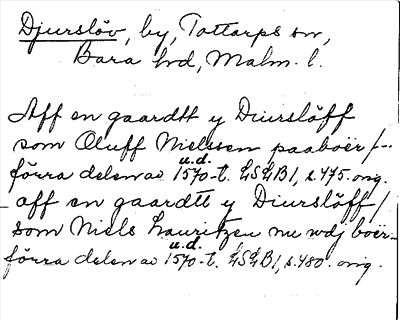 Djurslöv, by, Tottarps sn,
Bara hd, Malm. l.
Aff en gaardtt y Diurslöff
som Oluff Nielssen paaboer /--
u.d.
förra delen av 1570-t. LSLB1, s.475. orig.
aff en gaardtt y Diurslöff /
som Niels Lauritzen nu wdj boer-
u.d.
förra delen av 1570-t. LSLB1, s.480. orig.